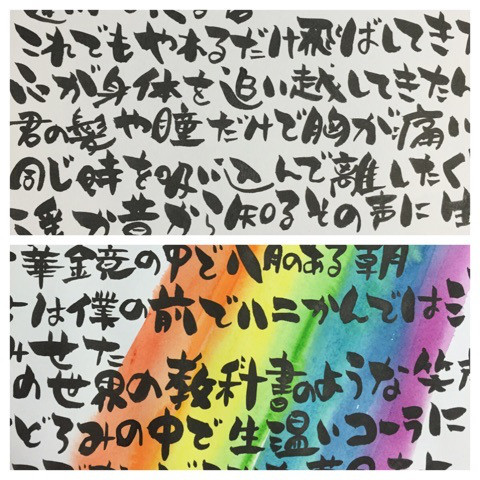 これでもやれるだけ飛ばしてき
心が身体を追い越してきたん
君の髪や瞳だけで胸が痛い
同じ時を吸い込んで離したく
遥か昔から知るその声に生
華鏡の中で八月のある朝
は僕の前でハニかんでは
みせた
の世界の教科書のような笑
どろみの中で生温いコーラに